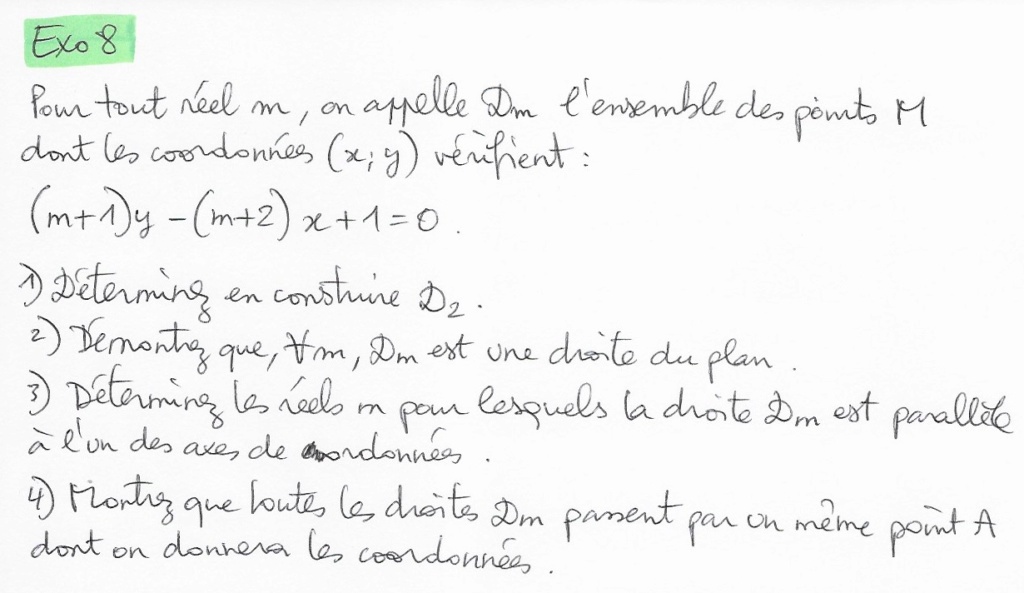 Exo 8
Pour tout réel m, on appelle Dm l'ensemble des points M
dont les coordonnées (x; y) vérifient :
(m+1)y - (m+2) x + 1 = 0.
1) Déterminez en construire D2.
2) Démontrez que, ∀m, Dm est une droite du plan.
3) Déterminez les réels m pour lesquels la droite Dm est parallèle
à l'un des axes de coordonnées.
4) Montrez que toutes les droites Dm passent par un même point A
dont on donnera les coordonnées.